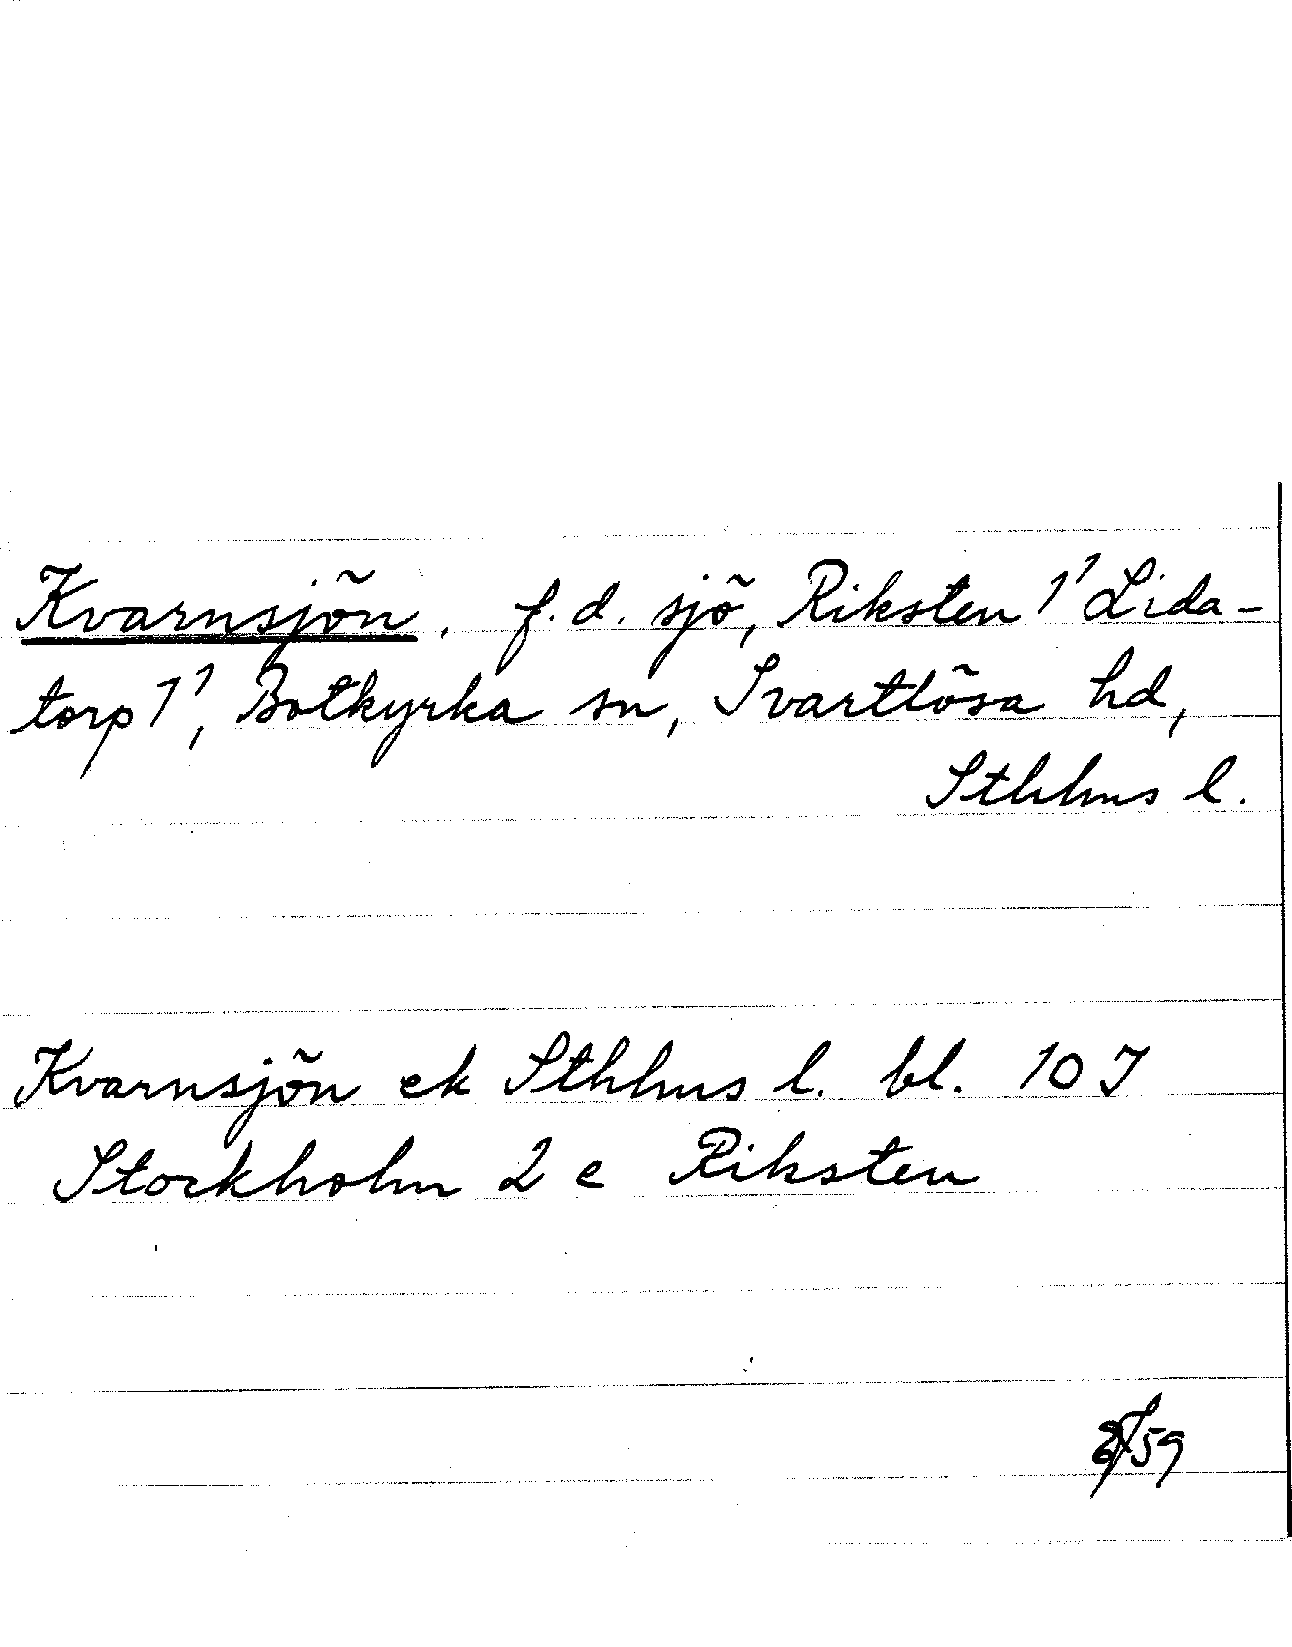 Kvarnsjön, f.d. sjö, Riksten 1¹ Lida-
torp 1¹, Botkyrka sn, Svartlösa hd,
Sthlms l.
Kvarnsjön ek Sthlms l. bl. 10 J
Stockholm 2 e Riksten
59